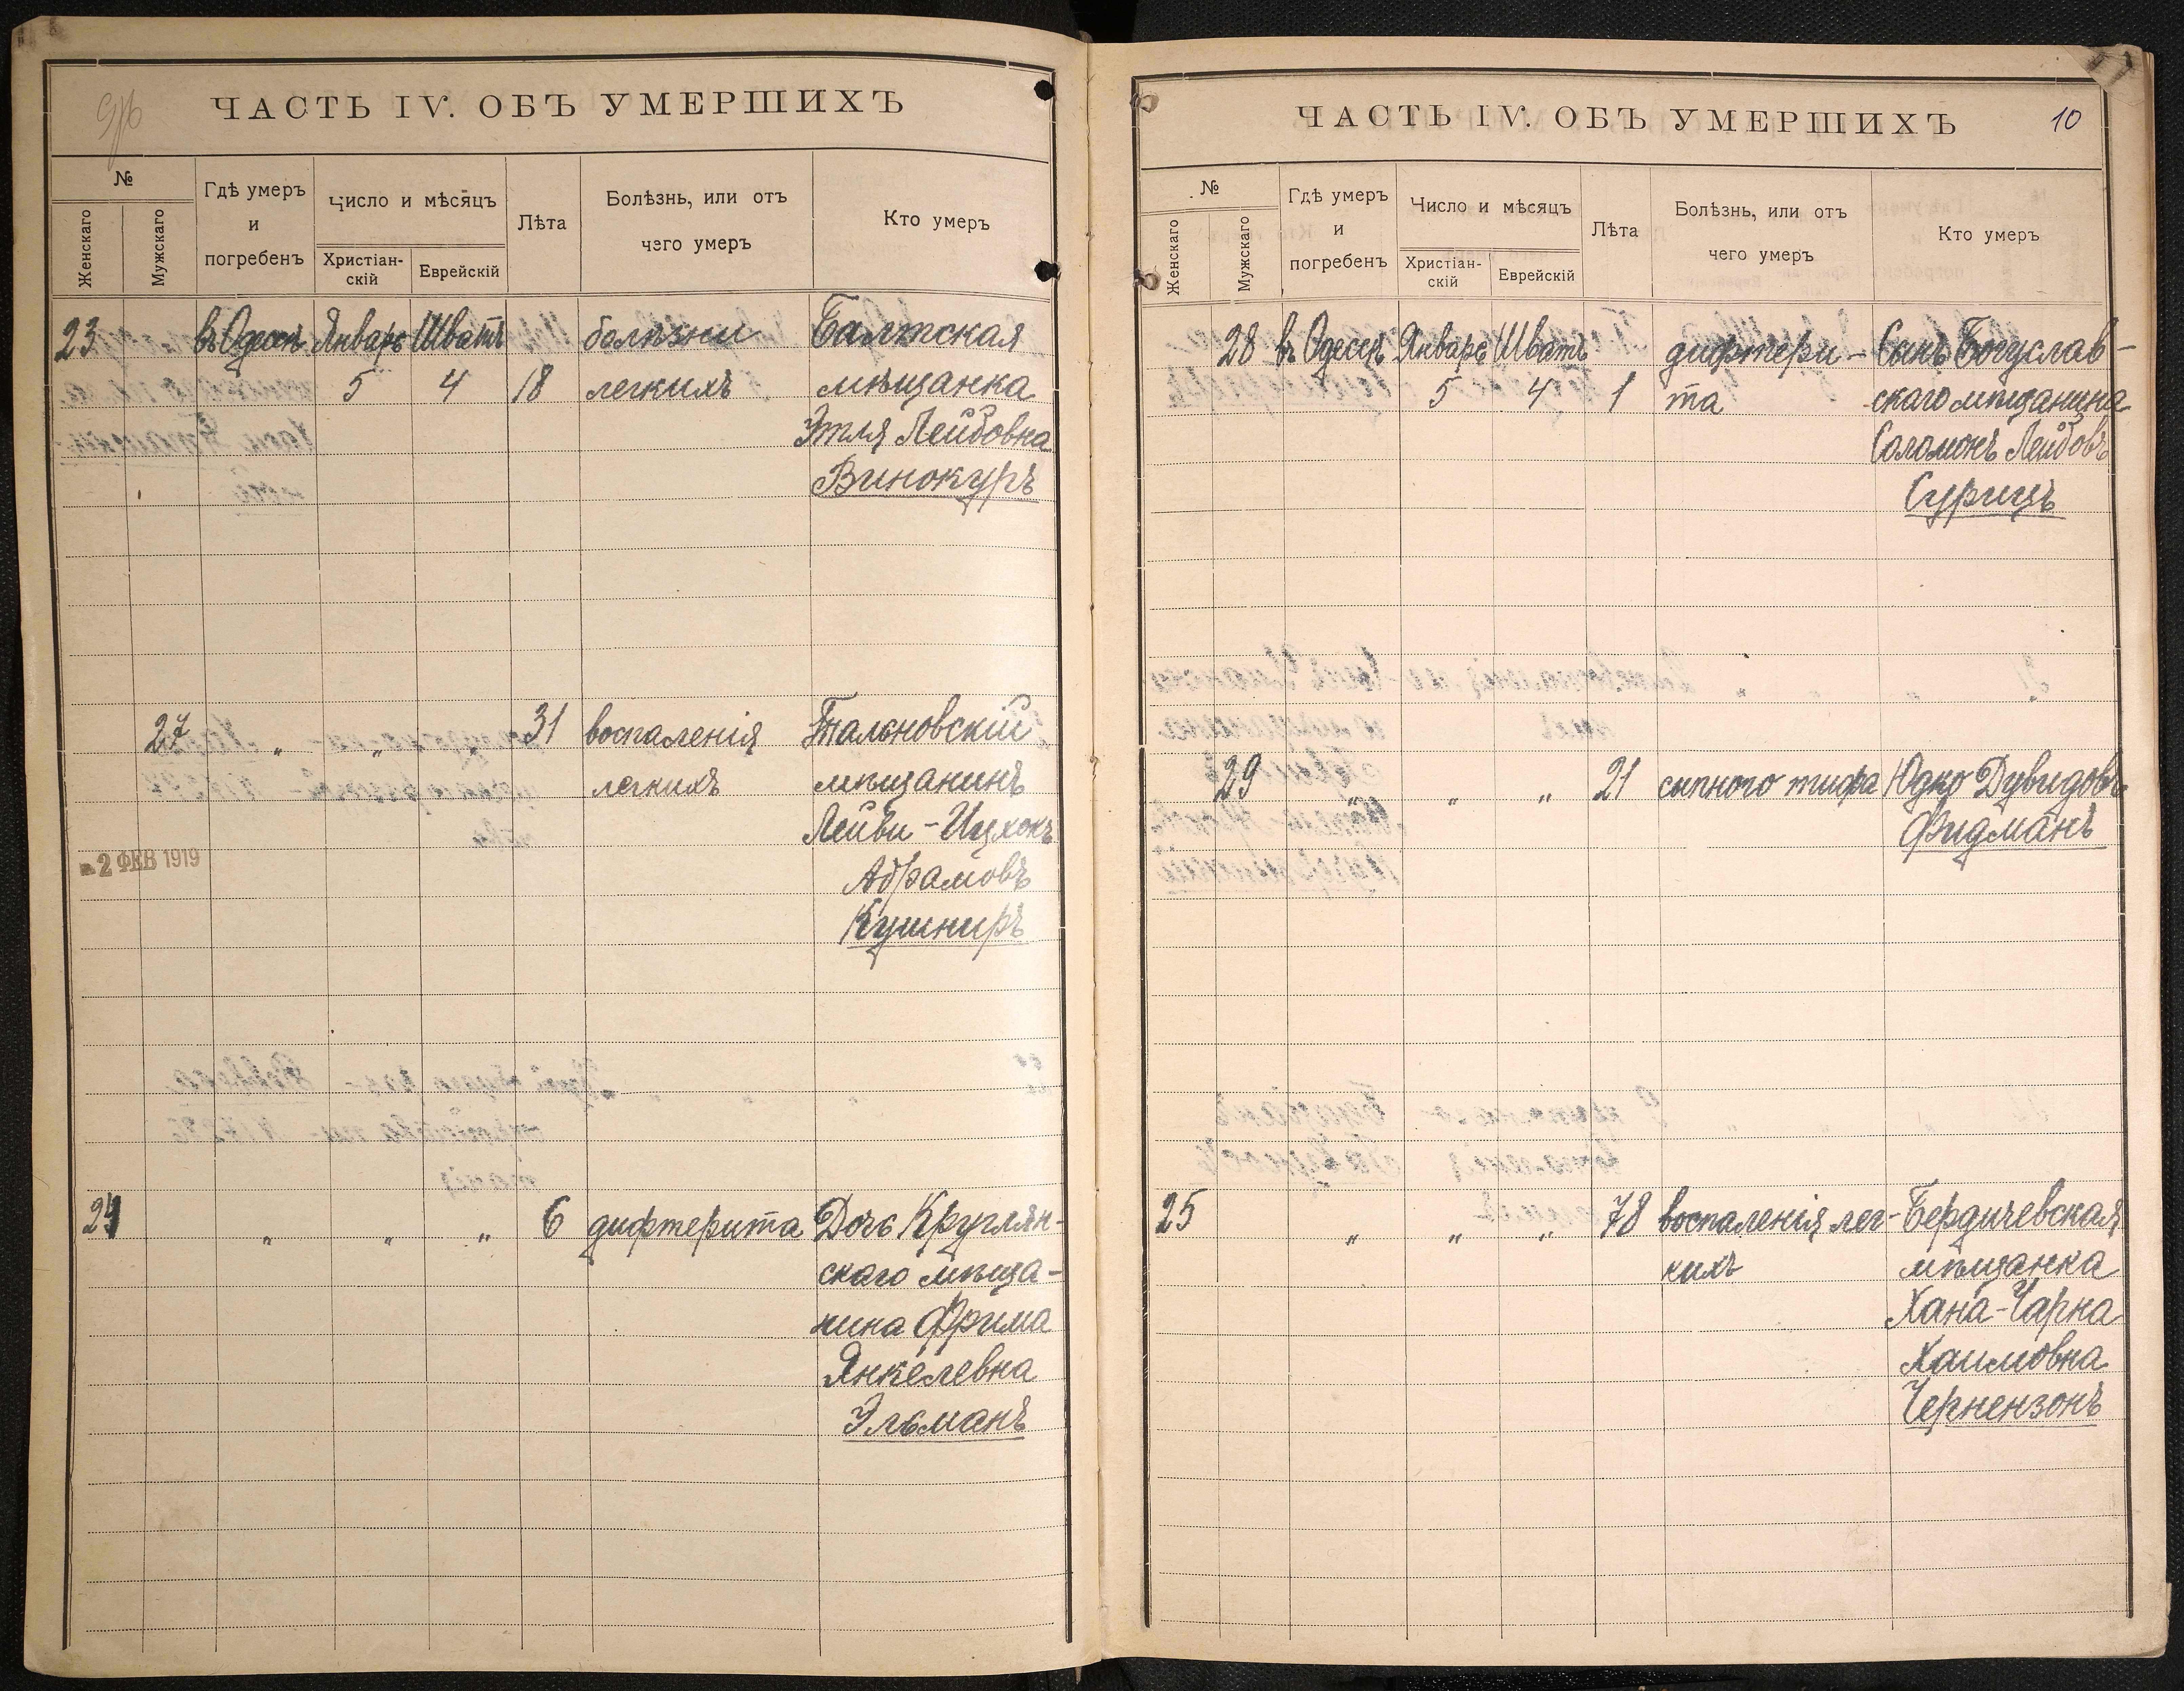 ЧАСТЬ IV. ОБЪ УМЕРШИХЪ
№
Женскаго
Мужскаго
Гдѣ умеръ
и
погребенъ
Число и мѣсяцъ
Христіан-
скій
Еврейскій
Лѣта
Болѣзнь, или отъ
чего умеръ
Кто умеръ
23 въ Одессѣ Январь Шватъ болѣзни Балтская
5 4 18 легкихъ мѣщанка
Этля Лейбовна
Винокуръ
27 " " " 31 воспаленія Тальновскій
легкихъ мѣщанинъ
Лейви-Ицхокъ
2 ФЕВ 1919
Абрамовъ
Кушниръ
24 " " " 6 дифтерита Дочь Круглян-
скаго мѣща-
нина Фрима
Янкелевна
Эльманъ
ЧАСТЬ IV. ОБЪ УМЕРШИХЪ 10
№
Женскаго
Мужскаго
Гдѣ умеръ
и
погребенъ
Число и мѣсяцъ
Христіан-
скій
Еврейскій
Лѣта
Болѣзнь, или отъ
чего умеръ
Кто умеръ
28 въ Одессѣ Январь Шватъ дифтери- Сынъ Богуслав-
5 4 1 та скаго мѣщанина
Соломонъ Лейбовъ
Сурицъ
29 " " " 21 сыпного тифа Юдко Дувидовъ
Фидманъ
25 " " " 78 воспаленія лег- Бердичевская
кихъ мѣщанка
Хана-Чарна
Хаимовна
Чернензонъ